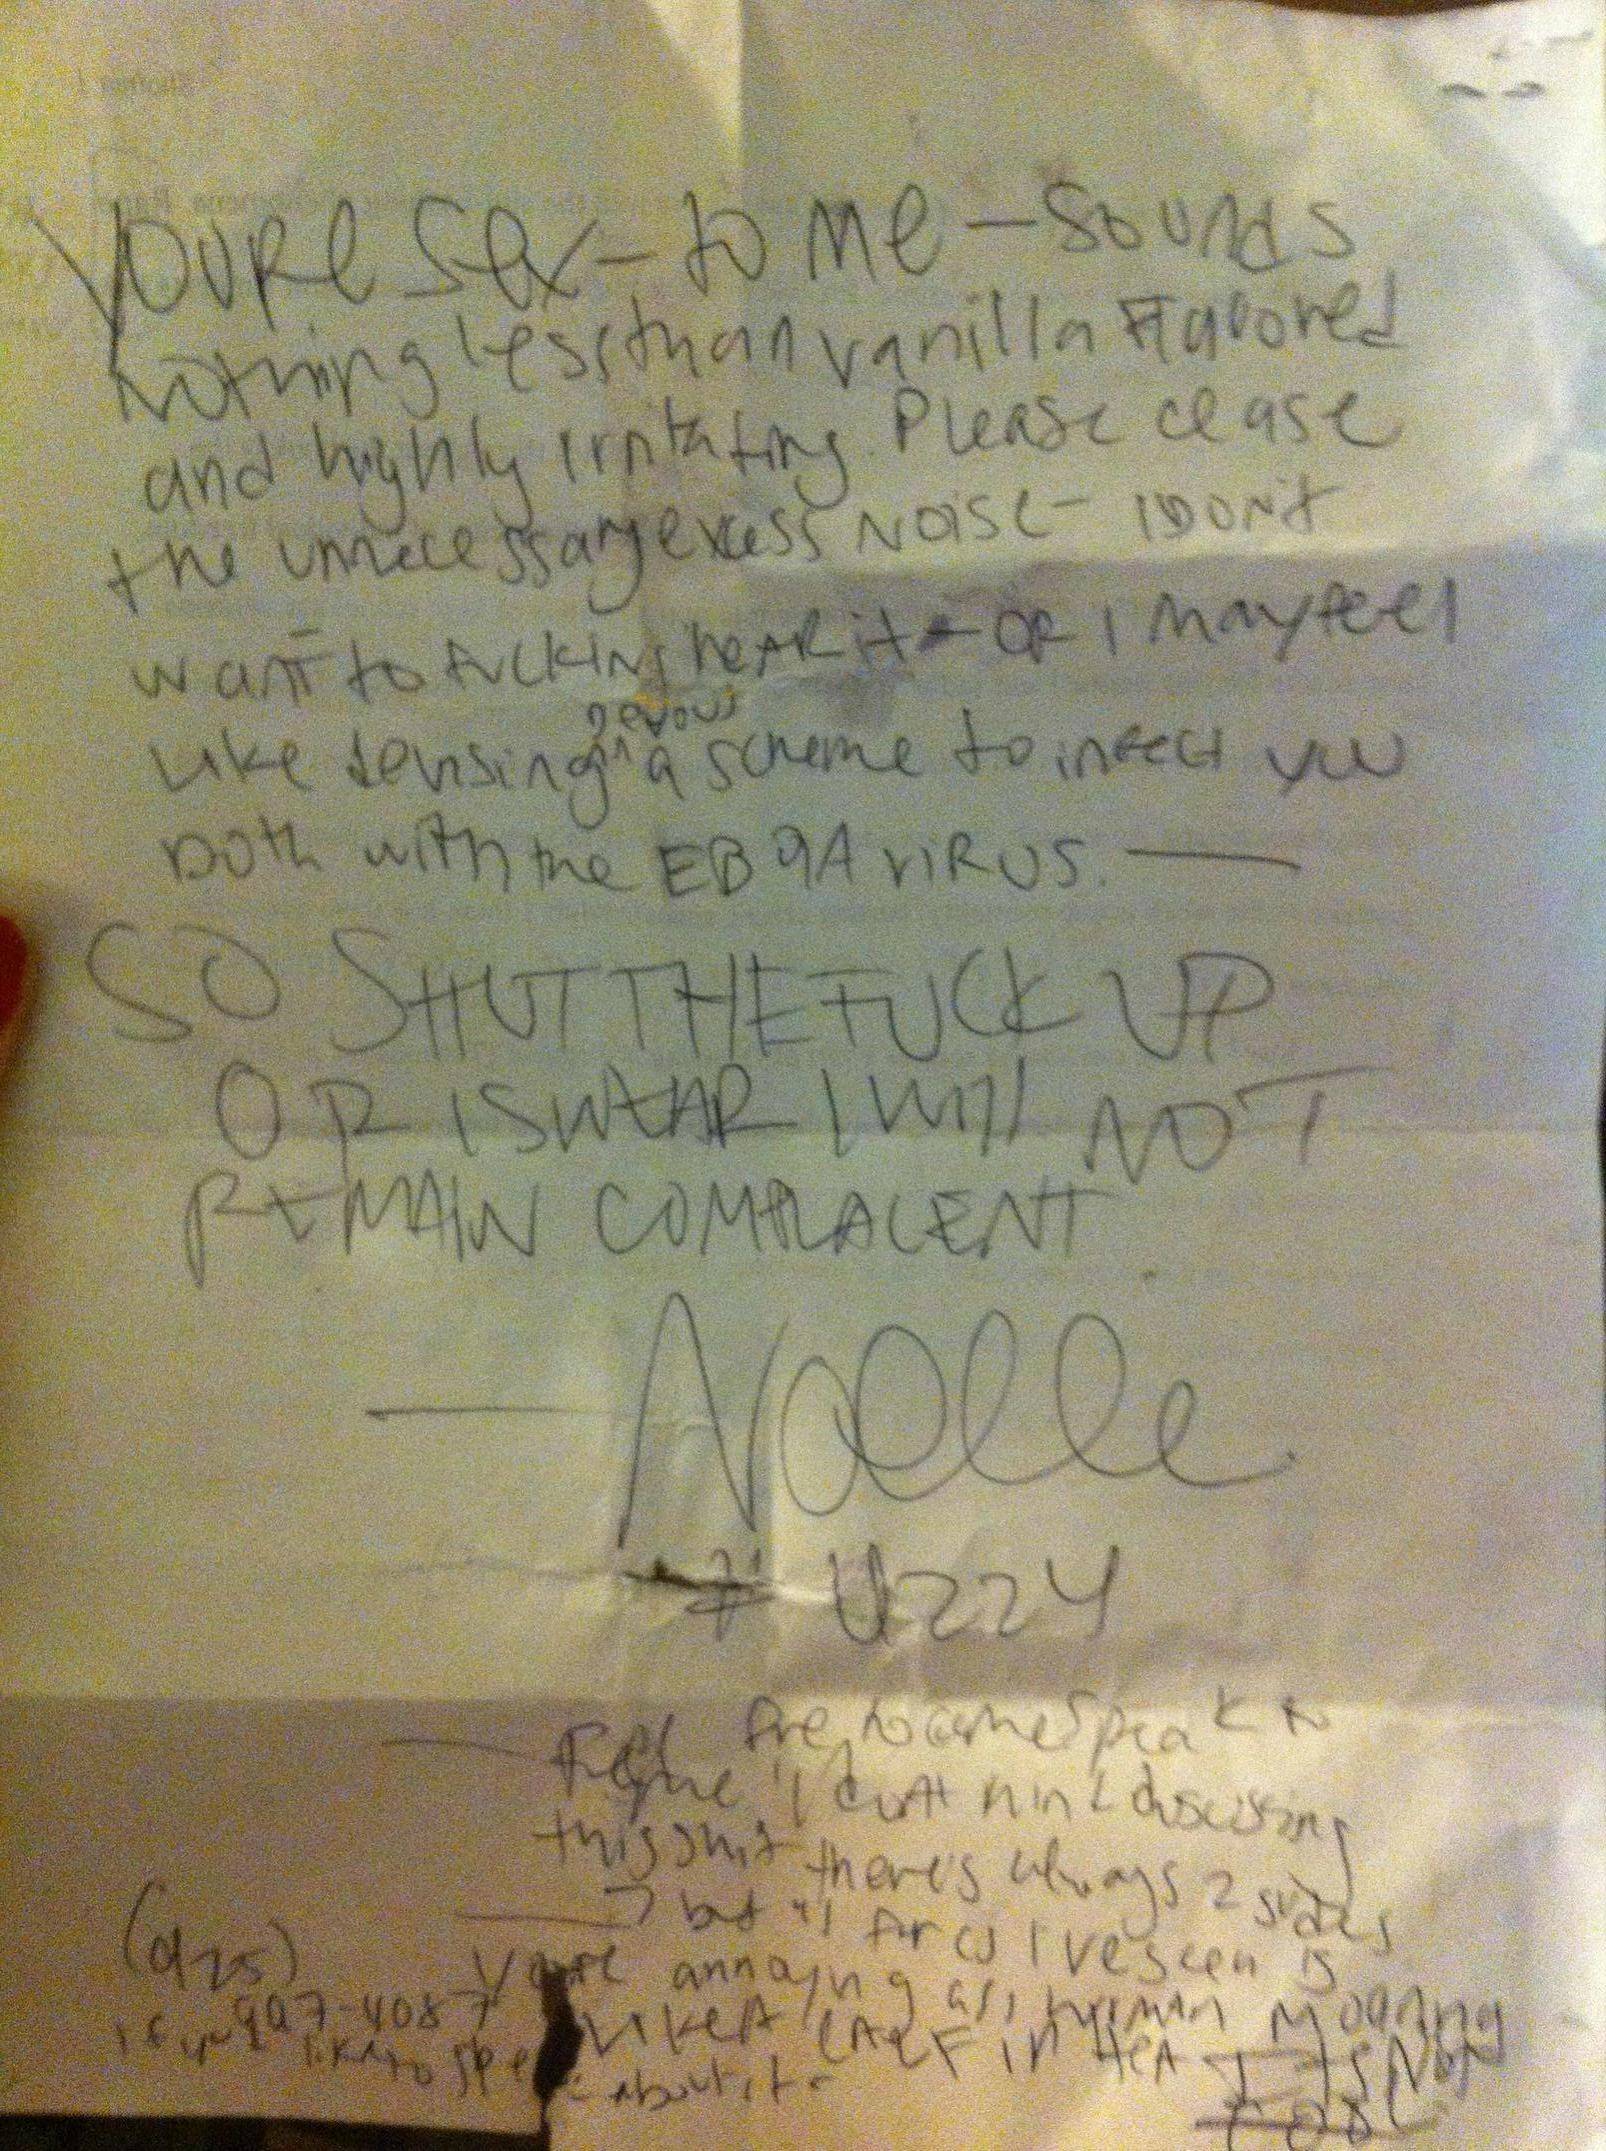 YOURE Sex - to Me - Sounds
nothing less than vanilla Flavored
and highly irritating. Please cease
the unnecessary excess NOISE - I DON't
want to fucking heAR it - OR I may feel
like devising a scheme to infect you
both with the EBOLA VIRUS. —
SO SHUT THE FUCK UP
OR I SWEAR I WIll NOT
REMAIN COMPLACENT
— Noelle
# U224
— Feel free to come speak to
me I don't mind discussing
this shit there's always 2 sides
but all far as I've seen is
annoying ass human moaning
LIKE A CALF IN HEAT ITS NOT
COOL
(925)
997-4087
if you'd like to about it -